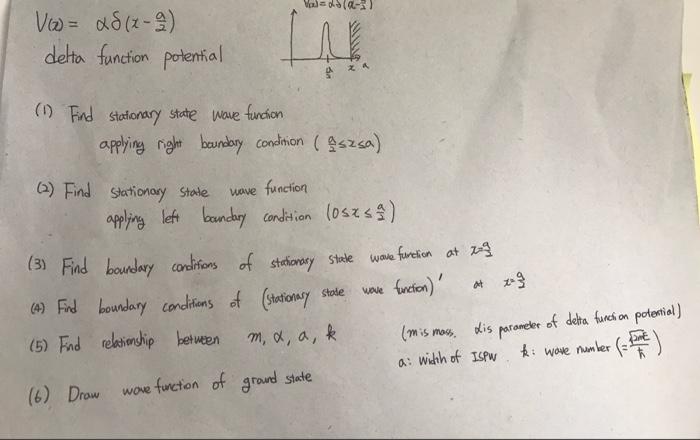 V(x) = αδ(x-a/2)
V(x) = αδ(x-a/2)
delta function potential
a/2 x a
(1) Find stationary state wave function
applying right boundary condition (a/2≤x≤a)
(2) Find stationary state wave function
applying left boundary condition (0≤x≤a/2)
(3) Find boundary conditions of stationary state wave function at x=a/2
(4) Find boundary conditions of (stationary state wave function)' at x=a/2
(5) Find relationship between m, α, a, k
(m is mass, α is parameter of delta function potential)
a: width of ISPW k: wave number (=√2mE/ħ)
(6) Draw wave function of ground state